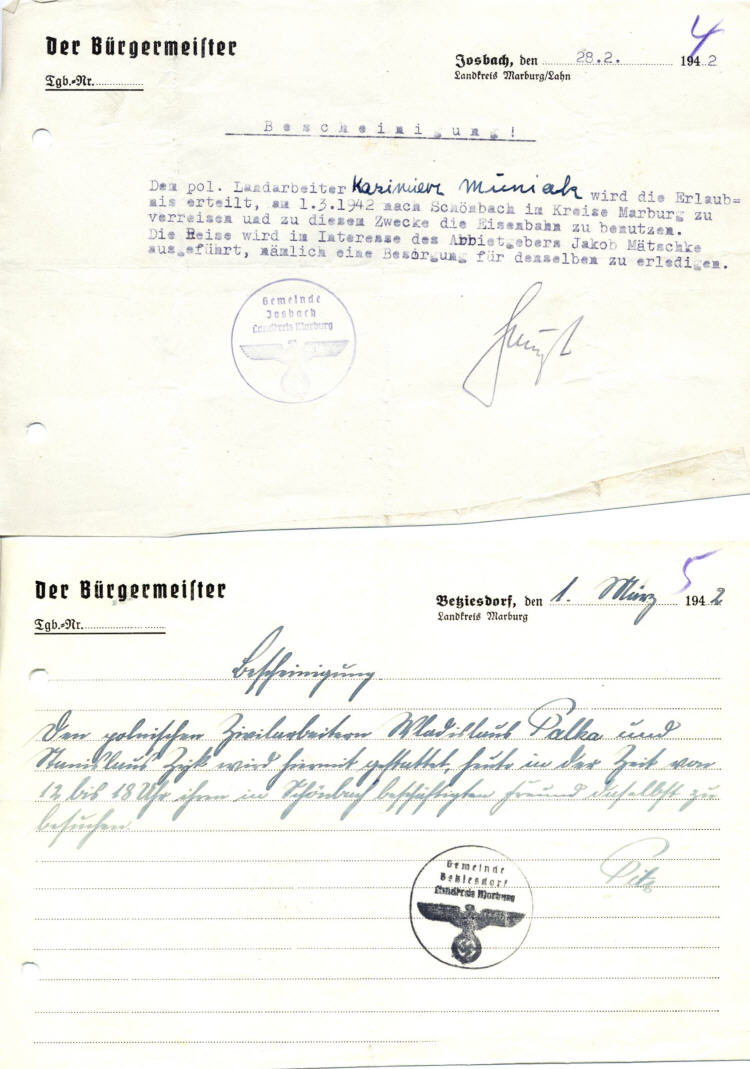 4
Der Bürgermeister
Tgb.-Nr.
Josbach, den 28.2. 1942
Landkreis Marburg/Lahn
Bescheinigung!
Dem pol. Landarbeiter Kazimierz Muniak wird die Erlaub=
nis erteilt, am 1.3.1942 nach Schönbach im Kreise Marburg zu
verreisen und zu diesem Zwecke die Eisenbahn zu benutzen.
Die Reise wird im Interesse des Abbietgebers Jakob Mätschke
ausgeführt, nämlich eine Besorgung für denselben zu erledigen.
Gemeinde
Josbach
Landkreis Marburg
5
Der Bürgermeister
Tgb.-Nr.
Betziesdorf, den 1. März 1942
Landkreis Marburg
Bescheinigung.
Den polnischen Zivilarbeitern Wladislaus Palka und
Stanislaus wird hiermit gestattet, heute in der Zeit von
12 bis 18 Uhr ihren in Schönbach beschäftigten Freund daselbst zu
besuchen.
Gemeinde
Betziesdorf
Landkreis Marburg